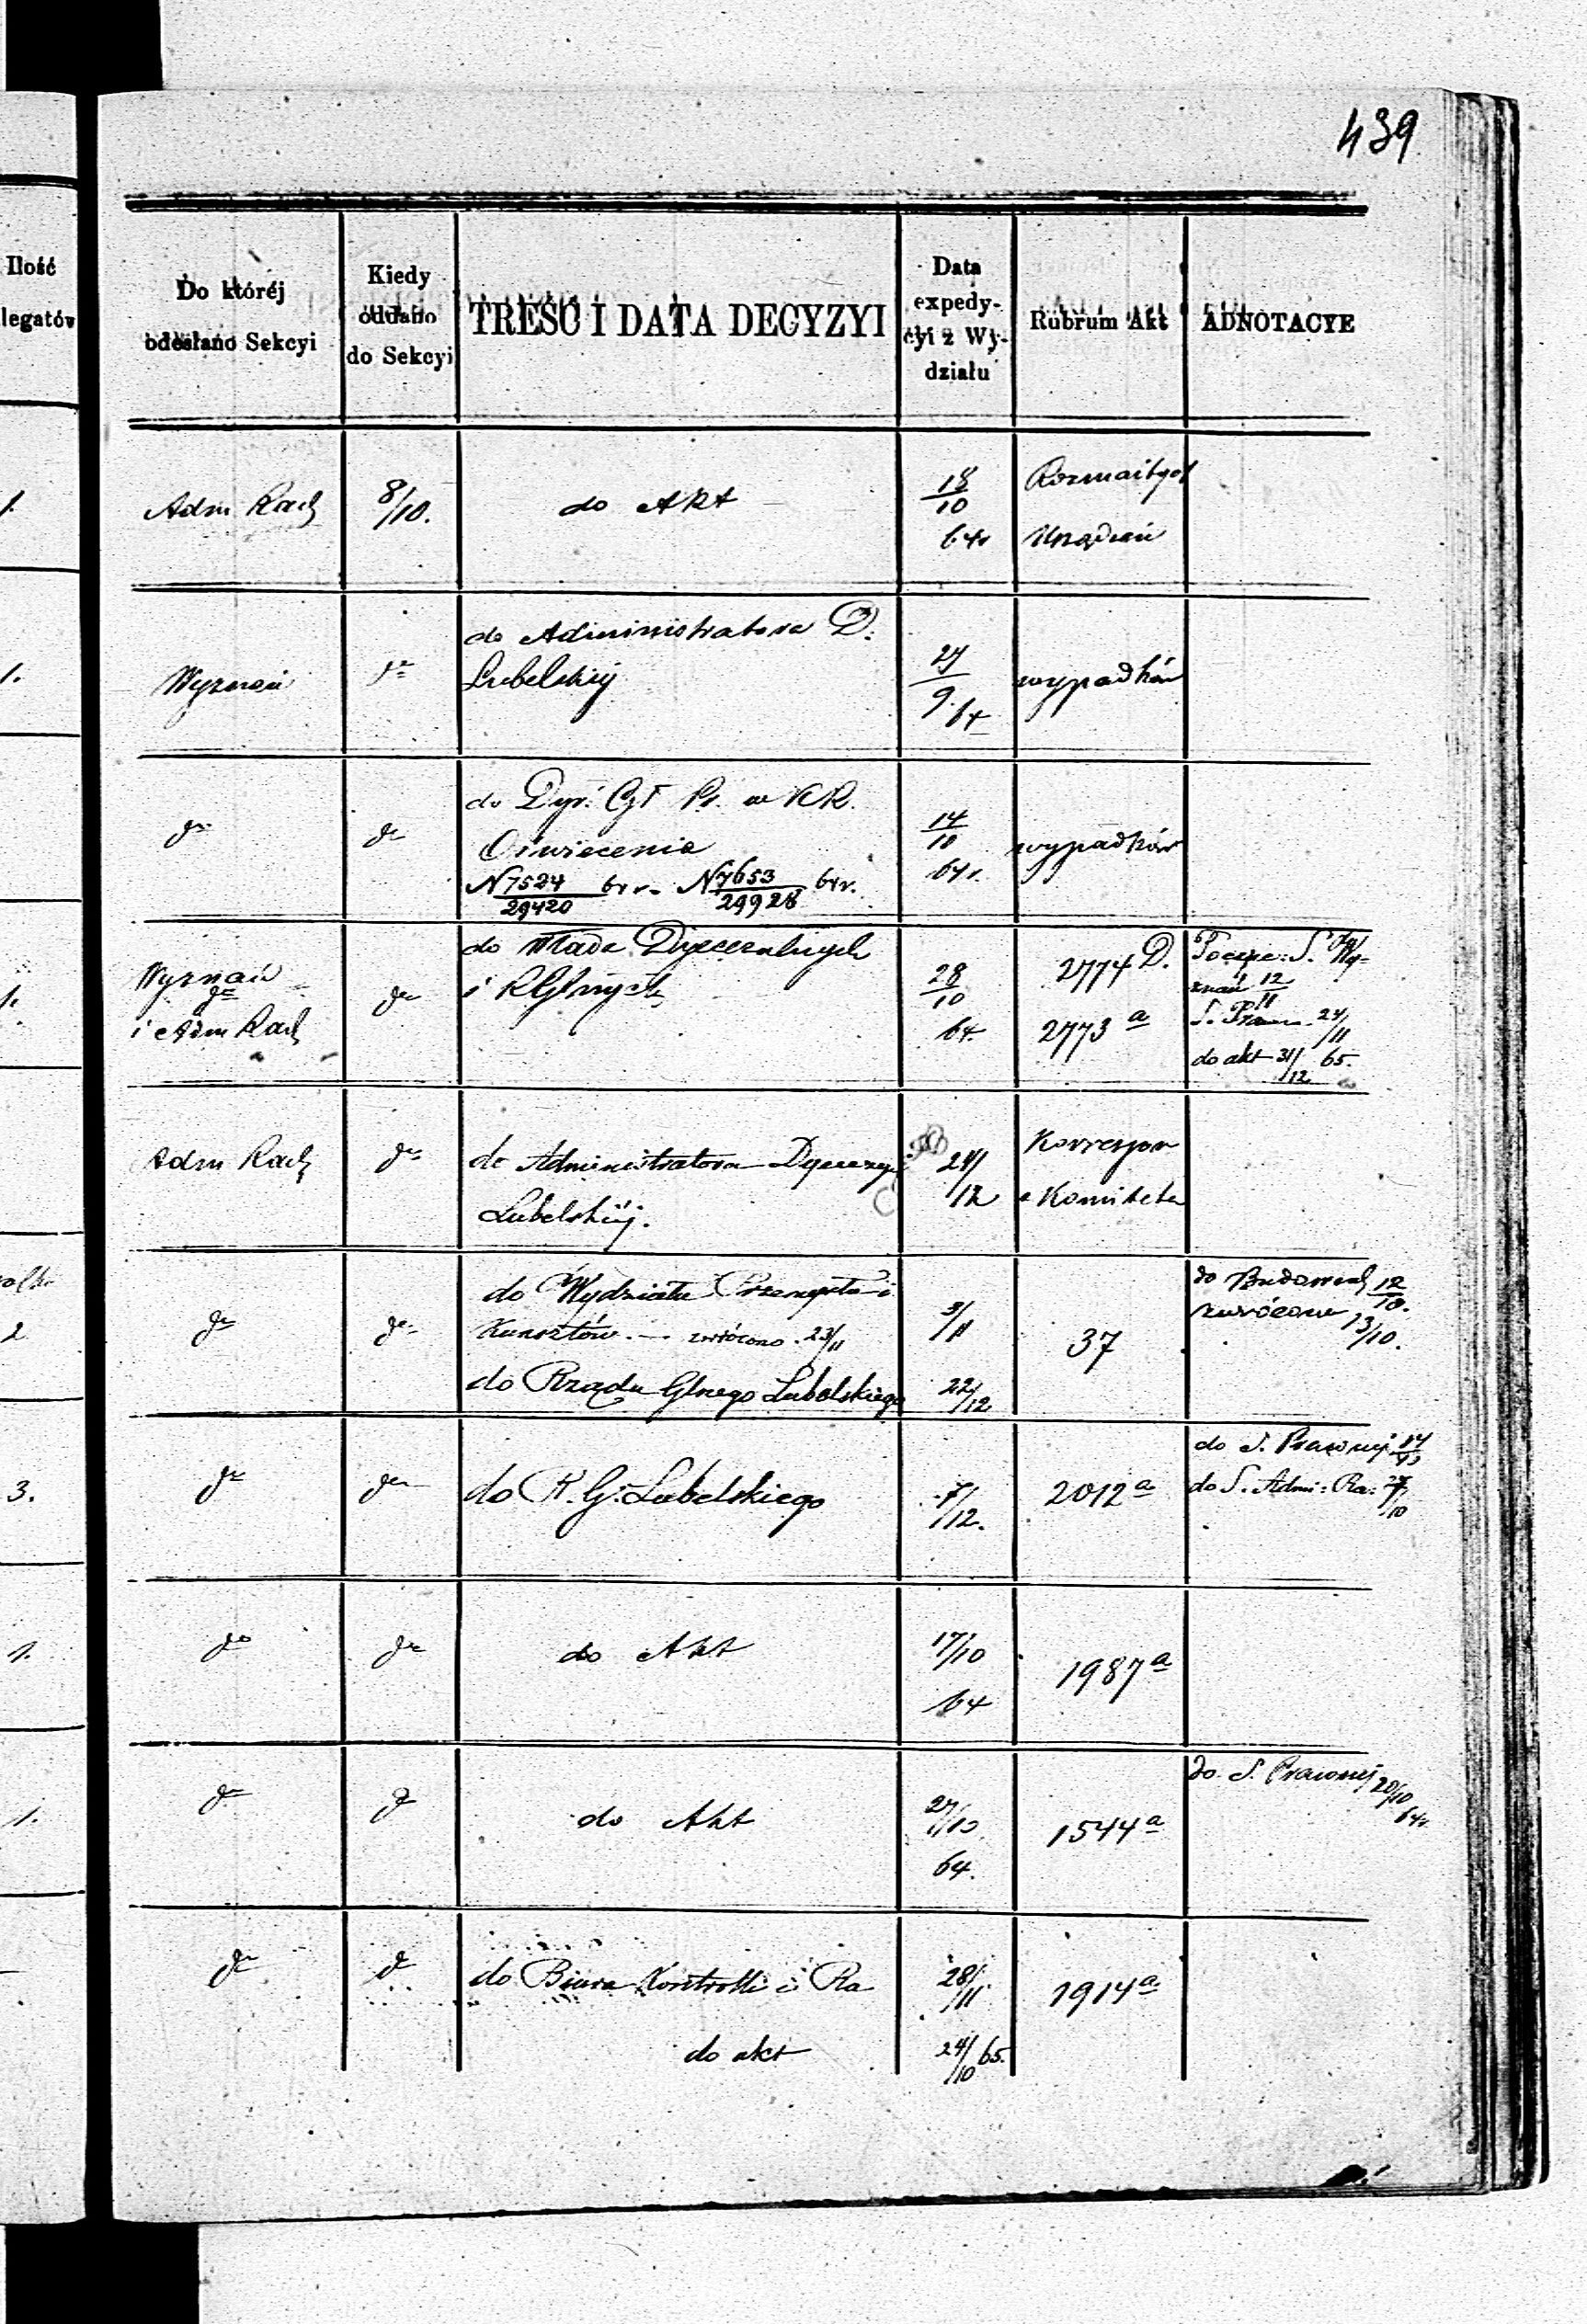 439
Ilość
legatów
Do któréj
odesłano Sekcyi
Kiedy
oddano
do Sekcyi
TREŚĆ I DATA DECYZYI
Data
expedy-
cyi z Wy-
działu
Rubrum Akt
ADNOTACYE
1.
Adm Rach
8/10.
do Akt
18/10
64r
Rozmaitych
Urządzeń
1.
Wyznań
do
do Administratora D.
Lubelskiéj
27/9 64
wypadków
do
do
do Dyr. Gł Pr. w KR.
Oświecenia
N 7524/29420 64 r. N 7653/29928 64r.
14/10
64r.
wypadków
1.
Wyznań
do
i Adm Rach
do
do Władz Dyecezalnych
i RGlnych
28/10
64.
2774 D.
2773 a
S. Wy-
znań 12/11
24/11
do akt 31/12 65.
Adm Rach
do
do Administratora Dyecezyi
Lubelskiéj.
24/12
Korrespon
z Komitetu
2
do
do
do Wydziału Przemysłu i
Kunsztów. — zwrócono 23/11
do Rządu Glnego Lubelskiego
3/11
22/12
37
do Budowach 12/10.
zwrócono 13/10.
3.
do
do
do R. G. Lubelskiego
7/12.
2012 a
do S. Prawnéj 14/10
do S. Adm: Ra:
1.
do
do
do Akt
17/10
64
1987 a
1.
do
do
do Akt
27/10
64.
1544 a
do S. Prawnéj 20/10
64r.
do
do
do Biura Kontrolli i Ra
28/11
1914 a
do akt
24/10 65.